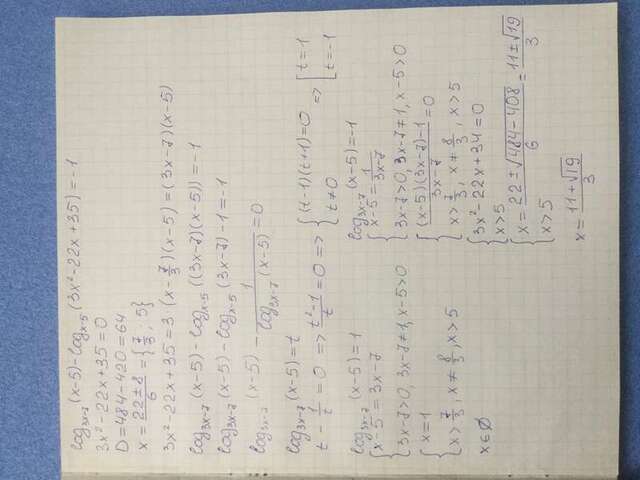 log_{3x-7}(x-5)-log_{x-5}(3x²-22x+35)=-1
3x²-22x+35=0
D=484-420=64
x=\frac{22±8}{6}={\frac{7}{3}; 5}
3x²-22x+35=3·(x-\frac{7}{3})(x-5)=(3x-7)(x-5)
log_{3x-7}(x-5)-log_{x-5}((3x-7)(x-5))=-1
log_{3x-7}(x-5)-log_{x-5}(3x-7)-1=-1
log_{3x-7}(x-5)-\frac{1}{log_{3x-7}(x-5)}=0
log_{3x-7}(x-5)=t
t-\frac{1}{t}=0 => \frac{t²-1}{t}=0 => { (t-1)(t+1)=0 t≠0 => [ t=1 t=-1
log_{3x-7}(x-5)=1
{ x-5=3x-7
3x-7>0, 3x-7≠1, x-5>0
{ x=1
x>\frac{7}{3}, x≠\frac{8}{3}, x>5
x∈∅
log_{3x-7}(x-5)=-1
{ x-5=\frac{1}{3x-7}
3x-7>0, 3x-7≠1, x-5>0
{ \frac{(x-5)(3x-7)-1}{3x-7}=0
x>\frac{7}{3}, x≠\frac{8}{3}, x>5
{ 3x²-22x+34=0
x>5
{ x=\frac{22±√484-408}{6}=\frac{11±√19}{3}
x>5
x=\frac{11+√19}{3}